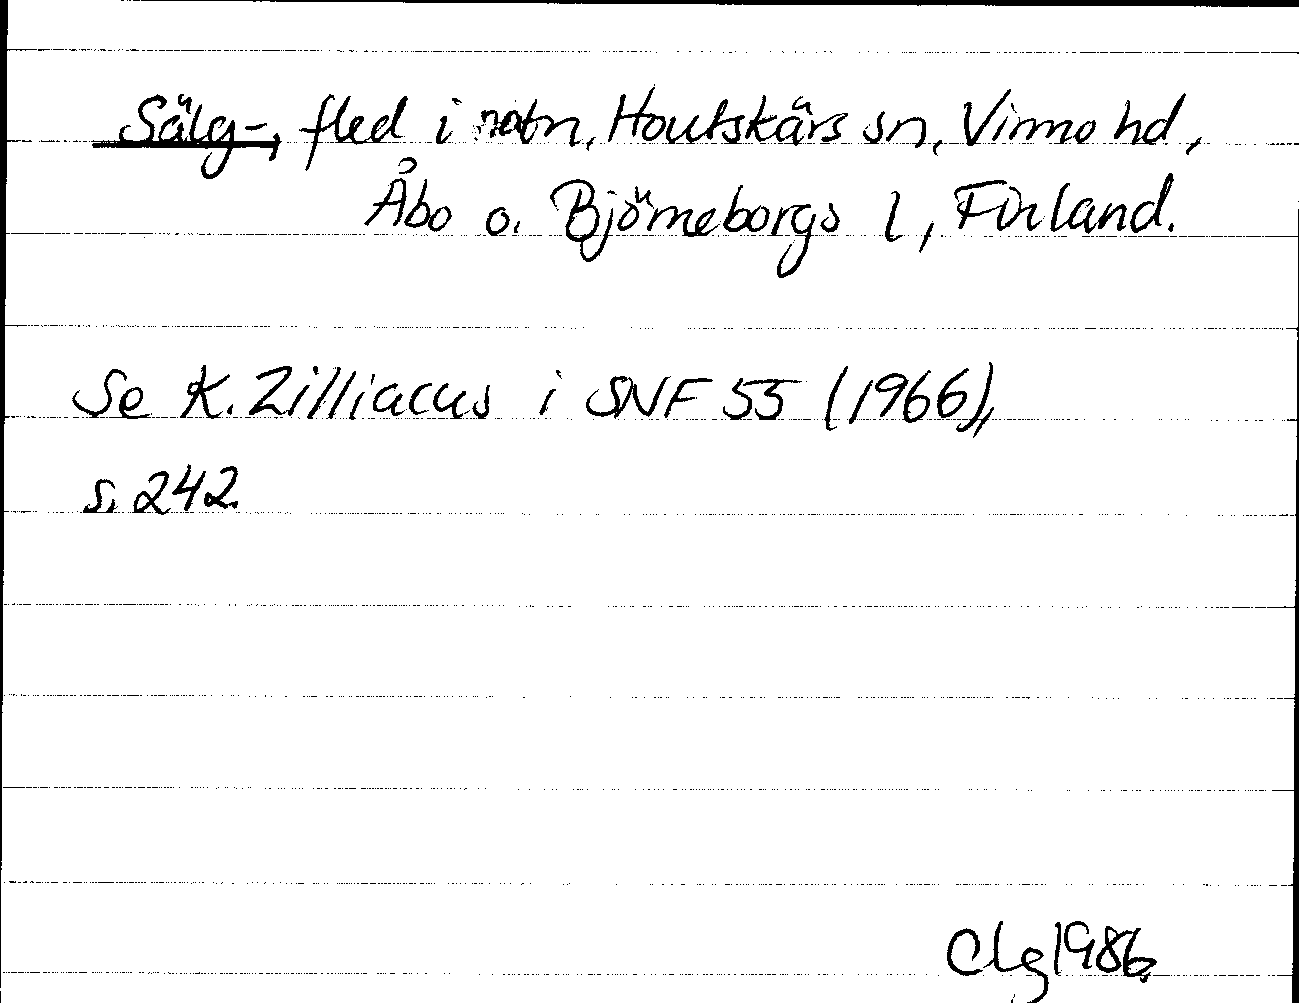 Sälg-, fled i natn, Houtskärs sn, Virmo hd,
Åbo o. Björneborgs l, Finland.
Se K. Zilliacus i SNF 55 (1966),
s. 242.
Clg 1986.